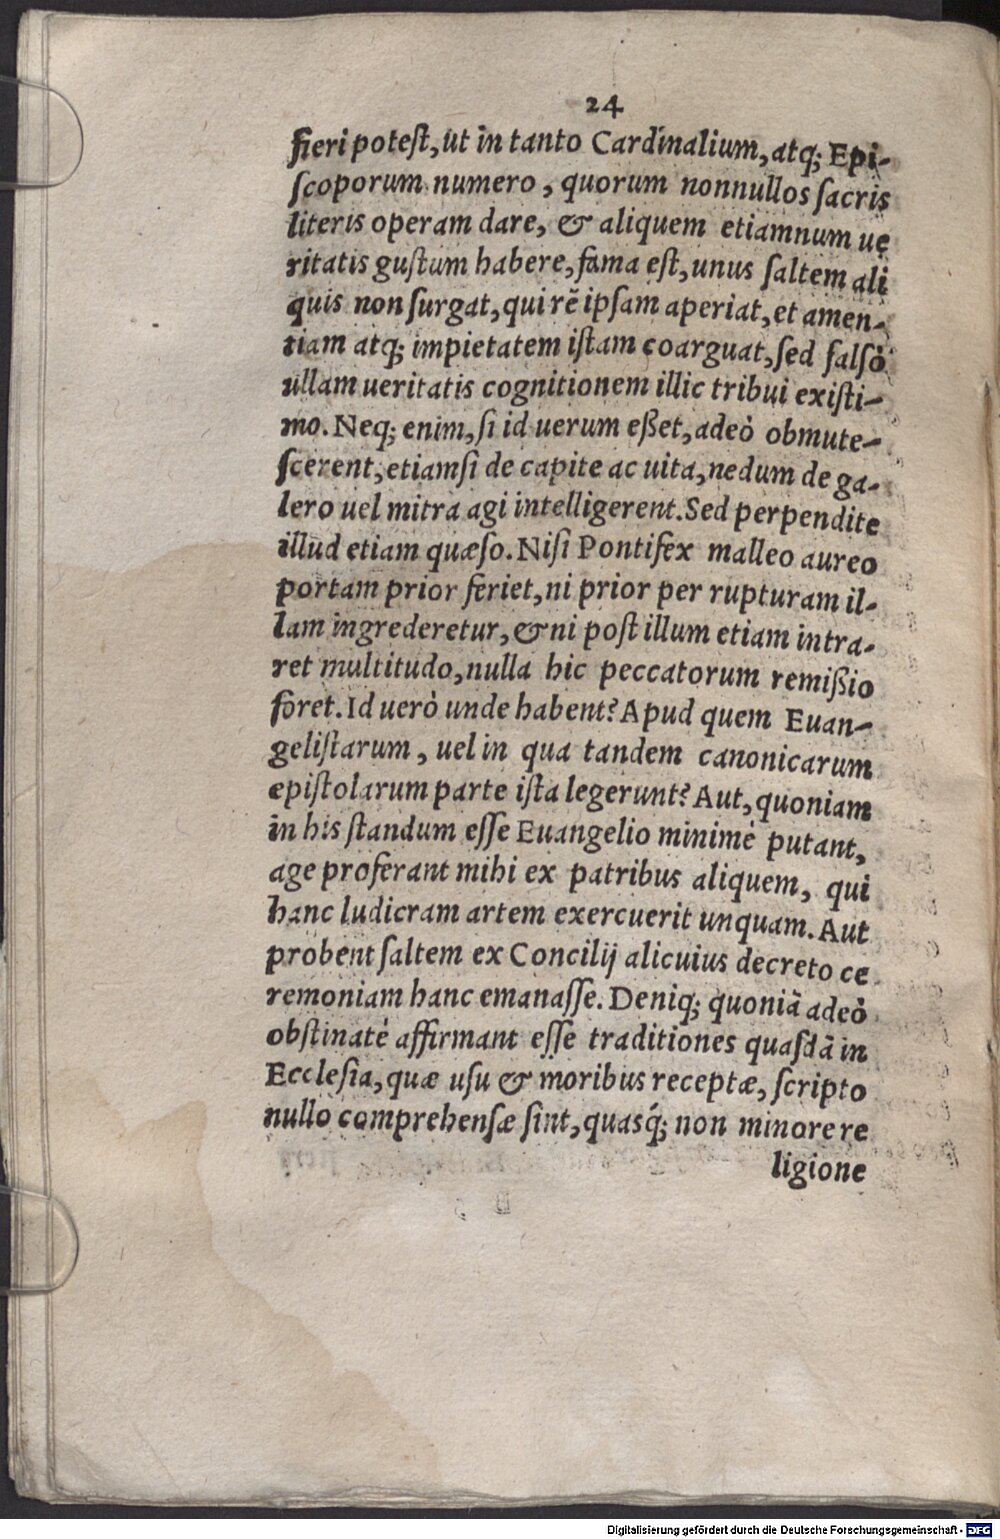 24
fieri potest, ut in tanto Cardinalium, atq; Epi-
scoporum numero, quorum nonnullos sacris
literis operam dare, & aliquem etiamnum ue
ritatis gustum habere, fama est, unus saltem ali
quis non surgat, qui rẽ ipsam aperiat, et amen-
tiam atq; impietatem istam coarguat, sed falsò
ullam ueritatis cognitionem illic tribui existi-
mo. Neq; enim, si id uerum eßet, adeò obmute-
scerent, etiamsi de capite ac uita, nedum de ga-
lero uel mitra agi intelligerent. Sed perpendite
illud etiam quæso. Nisi Pontifex malleo aureo
portam prior feriet, ni prior per rupturam il-
lam ingrederetur, & ni post illum etiam intra-
ret multitudo, nulla hic peccatorum remißio
foret. Id uerò unde habent? Apud quem Euan-
gelistarum, uel in qua tandem canonicarum
epistolarum parte ista legerunt? Aut, quoniam
in his standum esse Euangelio minimè putant,
age proferant mihi ex patribus aliquem, qui
hanc ludicram artem exercuerit unquam. Aut
probent saltem ex Concilij alicuius decreto ce
remoniam hanc emanasse. Deniq; quoniã adeò
obstinatè affirmant esse traditiones quasdã in
Ecclesia, quæ usu & moribus receptæ, scripto
nullo comprehensæ sint, quasq́; non minore re
ligione
Digitalisierung gefördert durch die Deutsche Forschungsgemeinschaft - DFG